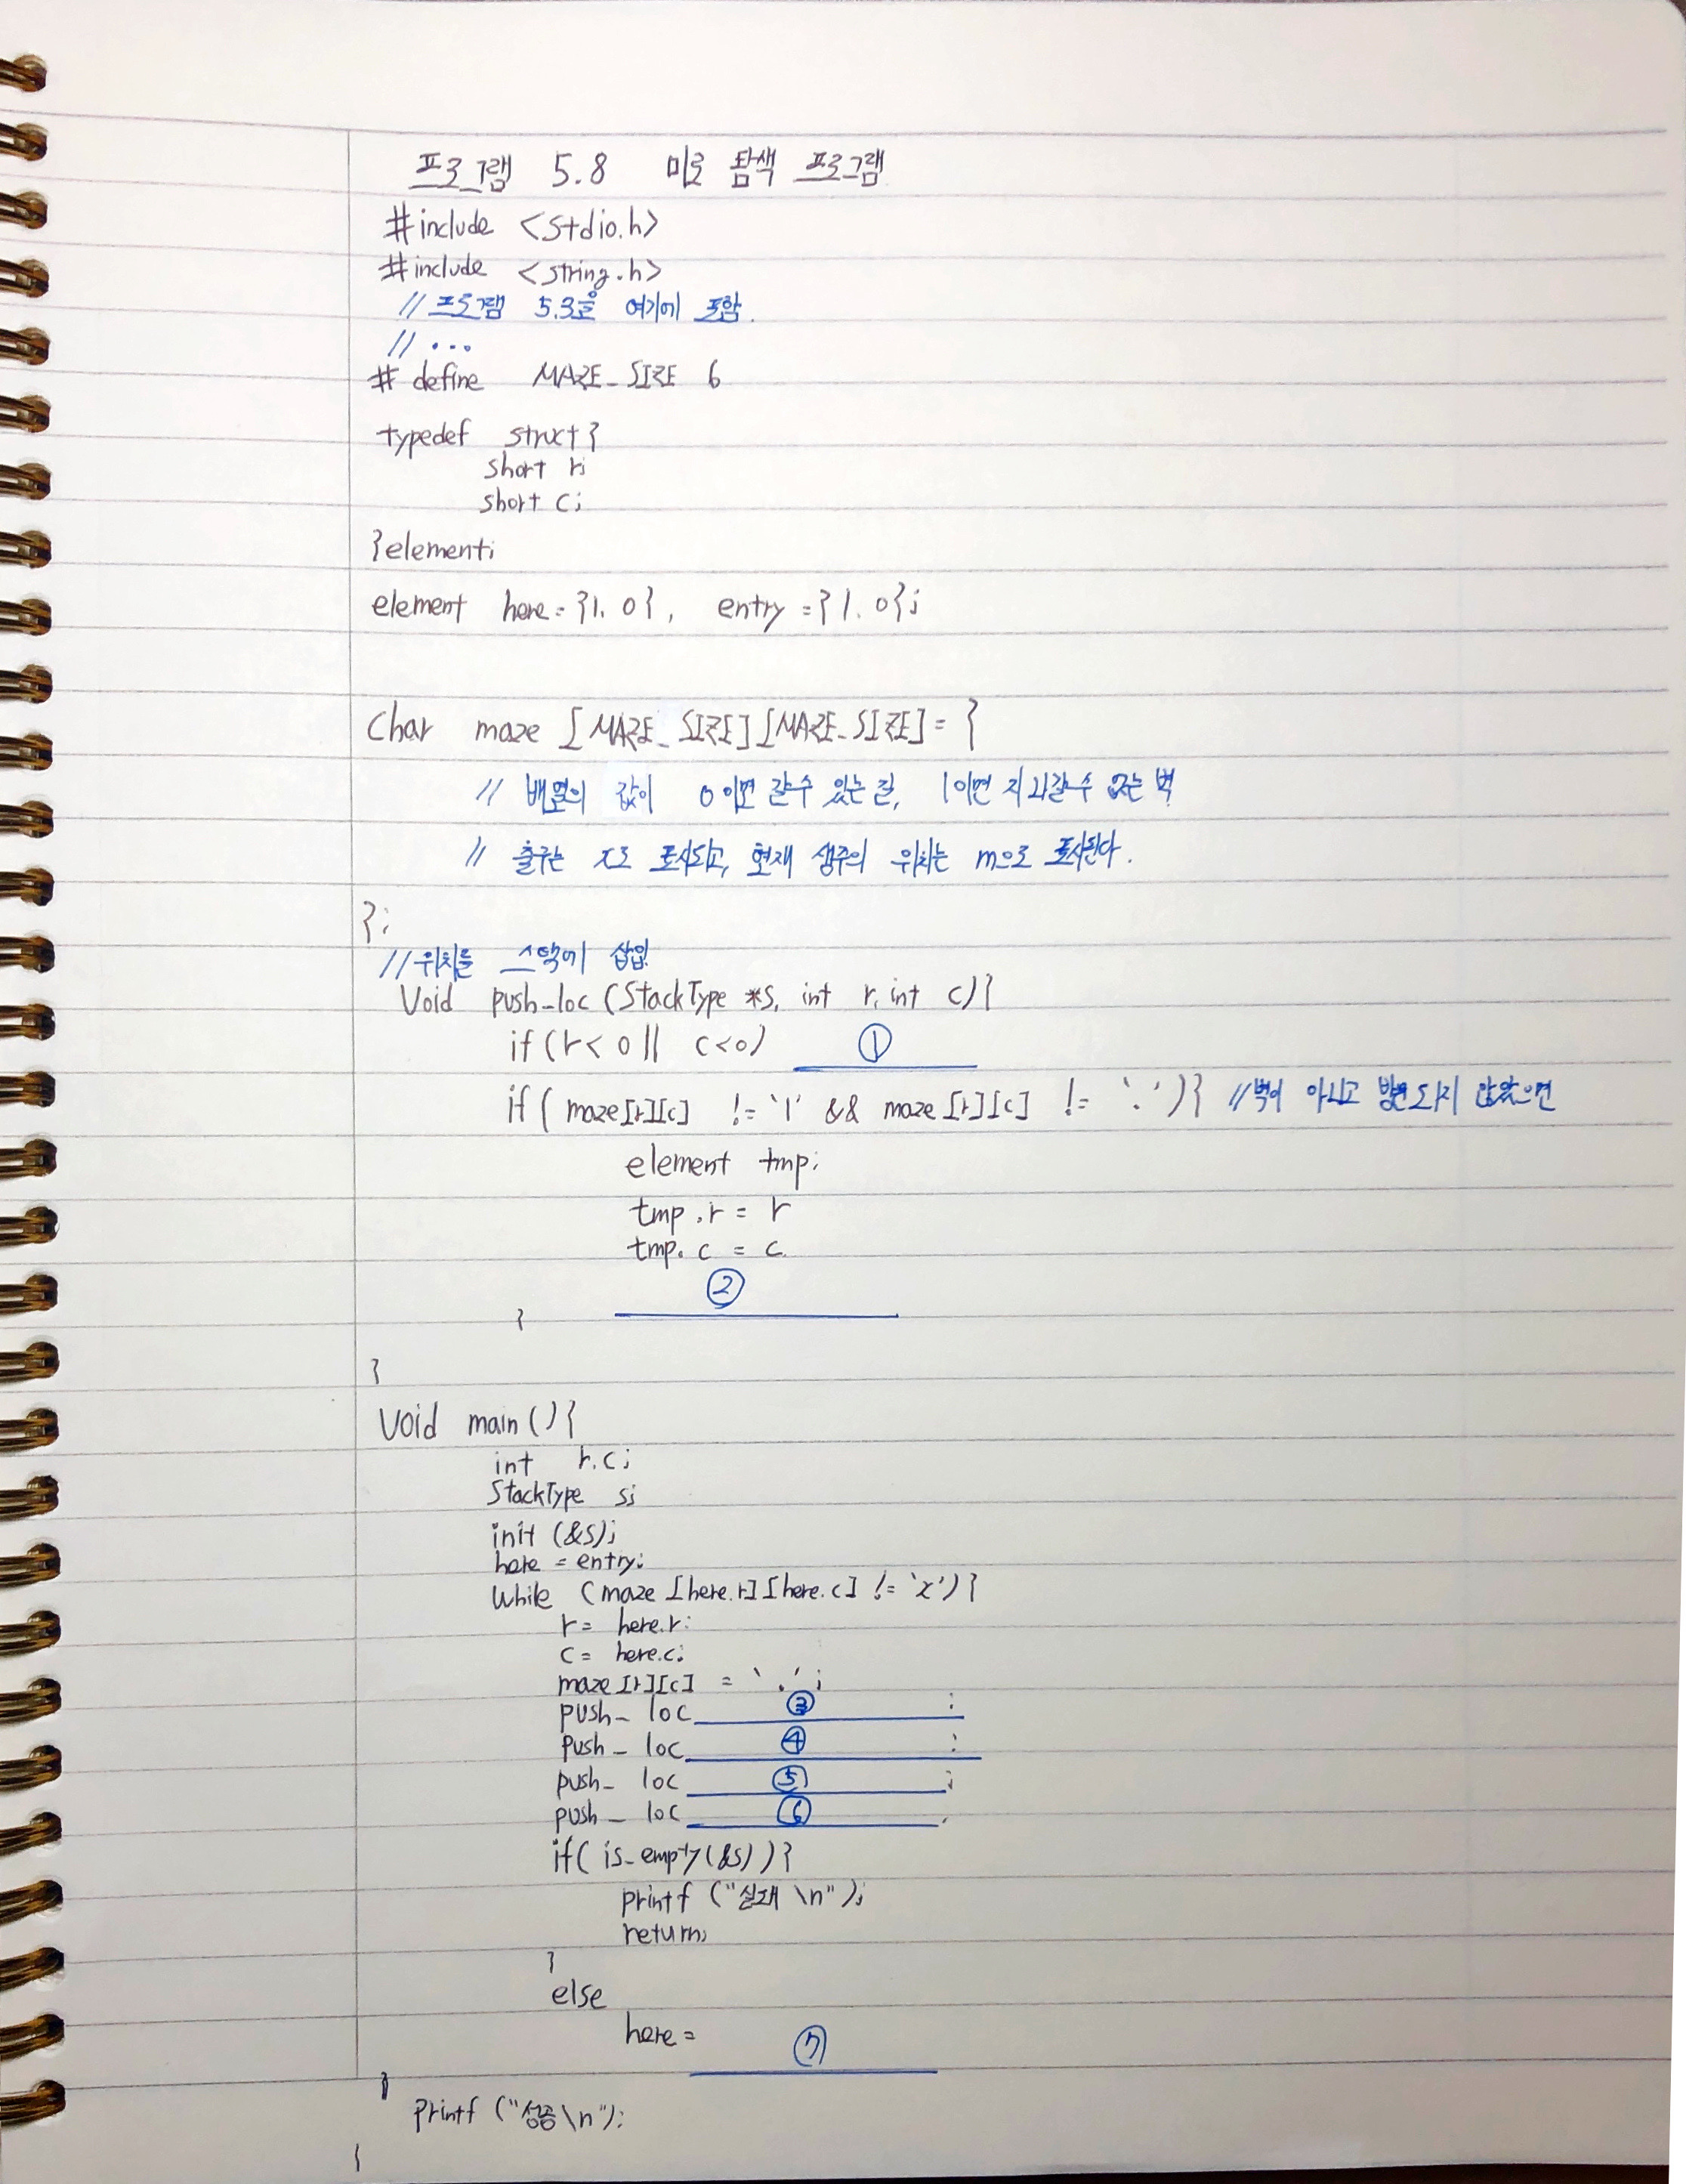 프로그램 5.8 미로 탐색 프로그램
#include <stdio.h>
#include <string.h>
// 프로그램 5.3을 여기에 포함.
// ...
# define MAZE_SIZE 6
typedef struct {
short r;
short c;
}element;
element here = {1. 0}, entry = {1. 0};
Char maze [MAZE_SIZE][MAZE_SIZE] = {
// 배열의 값이 0이면 갈수 있는 길, 1이면 지나갈수 없는 벽
// 출구는 x로 표시되고, 현재 생쥐의 위치는 m으로 표시된다.
};
// 위치를 스택에 삽입
Void push_loc (StackType *s, int r, int c){
if (r < 0 || c < 0) ①
if ( maze[r][c] != '1' && maze[r][c] != '.' ){ // 벽이 아니고 방문되지 않았으면
element tmp;
tmp.r = r
tmp.c = c
②
}
}
Void main(){
int r.c;
StackType s;
init (&s);
here = entry;
While (maze [here.r][here.c] != 'x'){
r = here.r;
c = here.c;
maze[r][c] = '.';
push_ loc ③ ;
push_ loc ④ ;
push_ loc ⑤ ;
push_ loc ⑥ ;
if( is_empty(&s) ){
printf ("실패 \n");
return;
}
else
here = ⑦
}
printf ("성공\n");
}